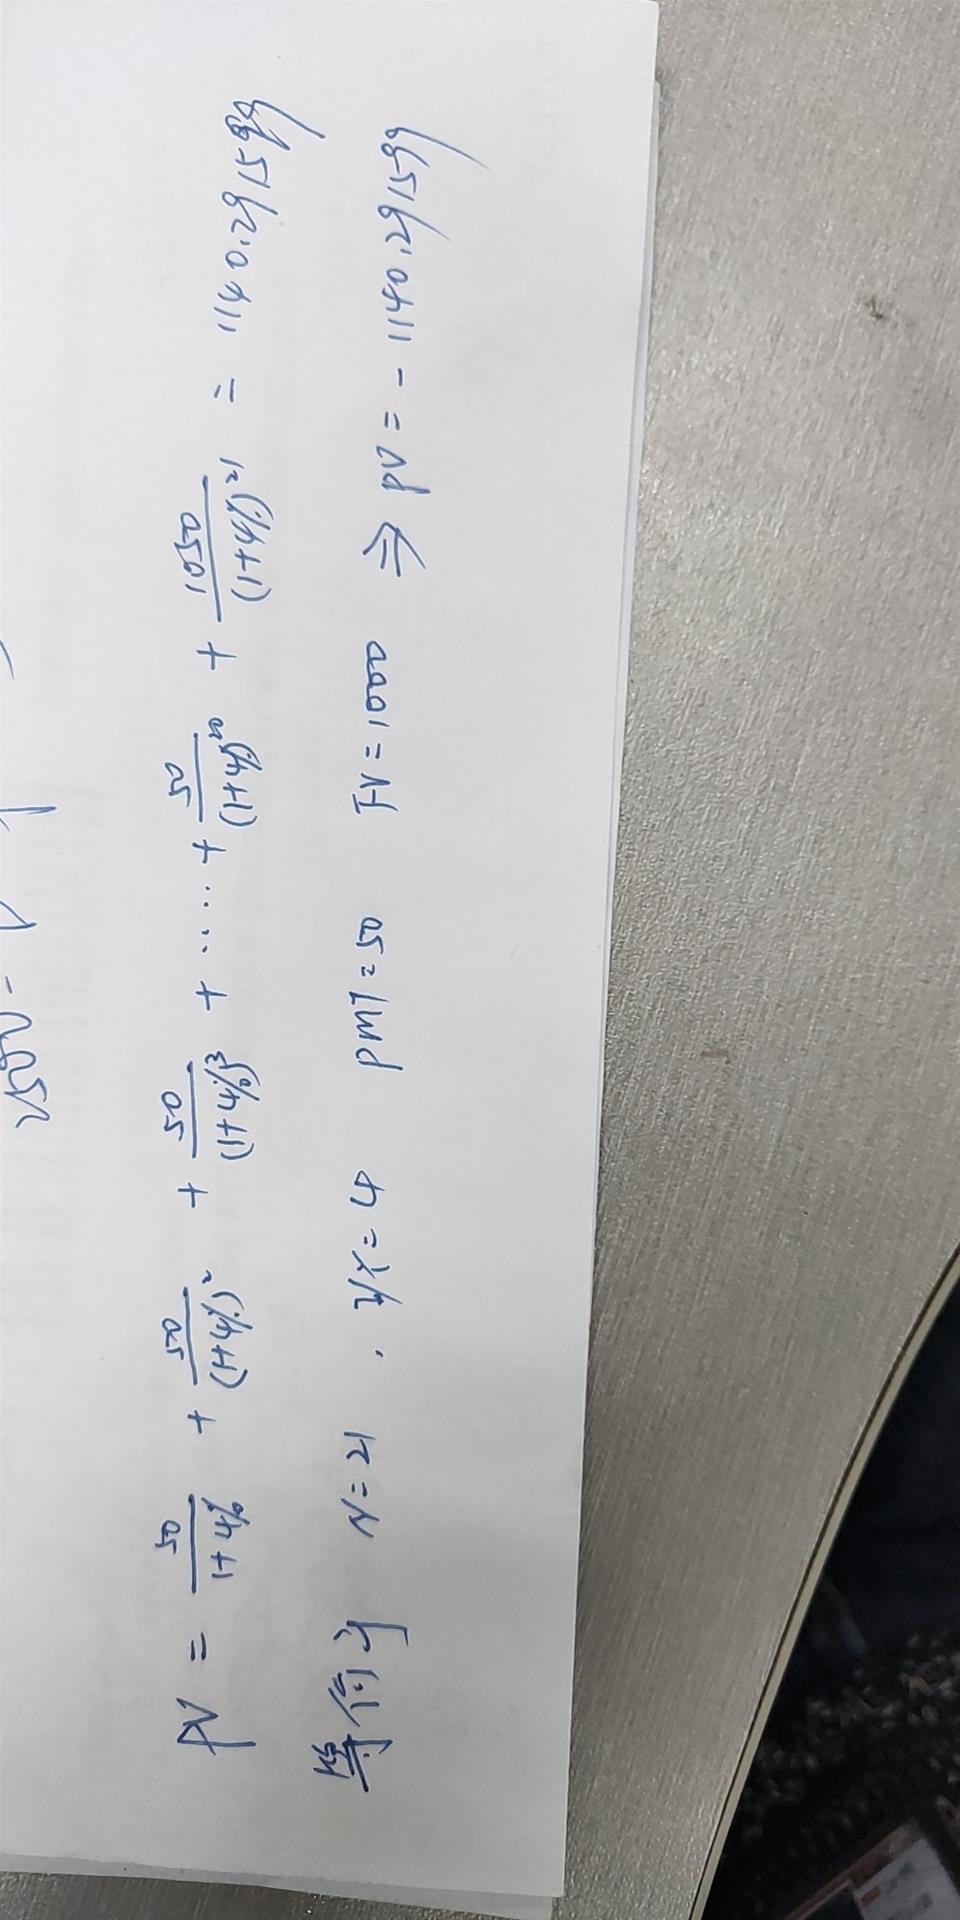 PV = 50/(1+4%) + 50/(1+4%)² + 50/(1+4%)³ + ..... + 50/(1+4%)²⁰ + 1050/(1+4%)²¹ = 1140.291599
N=21 , I/Y=4 PMT=50 FV=1000 ⇒ PV = -1140.291599